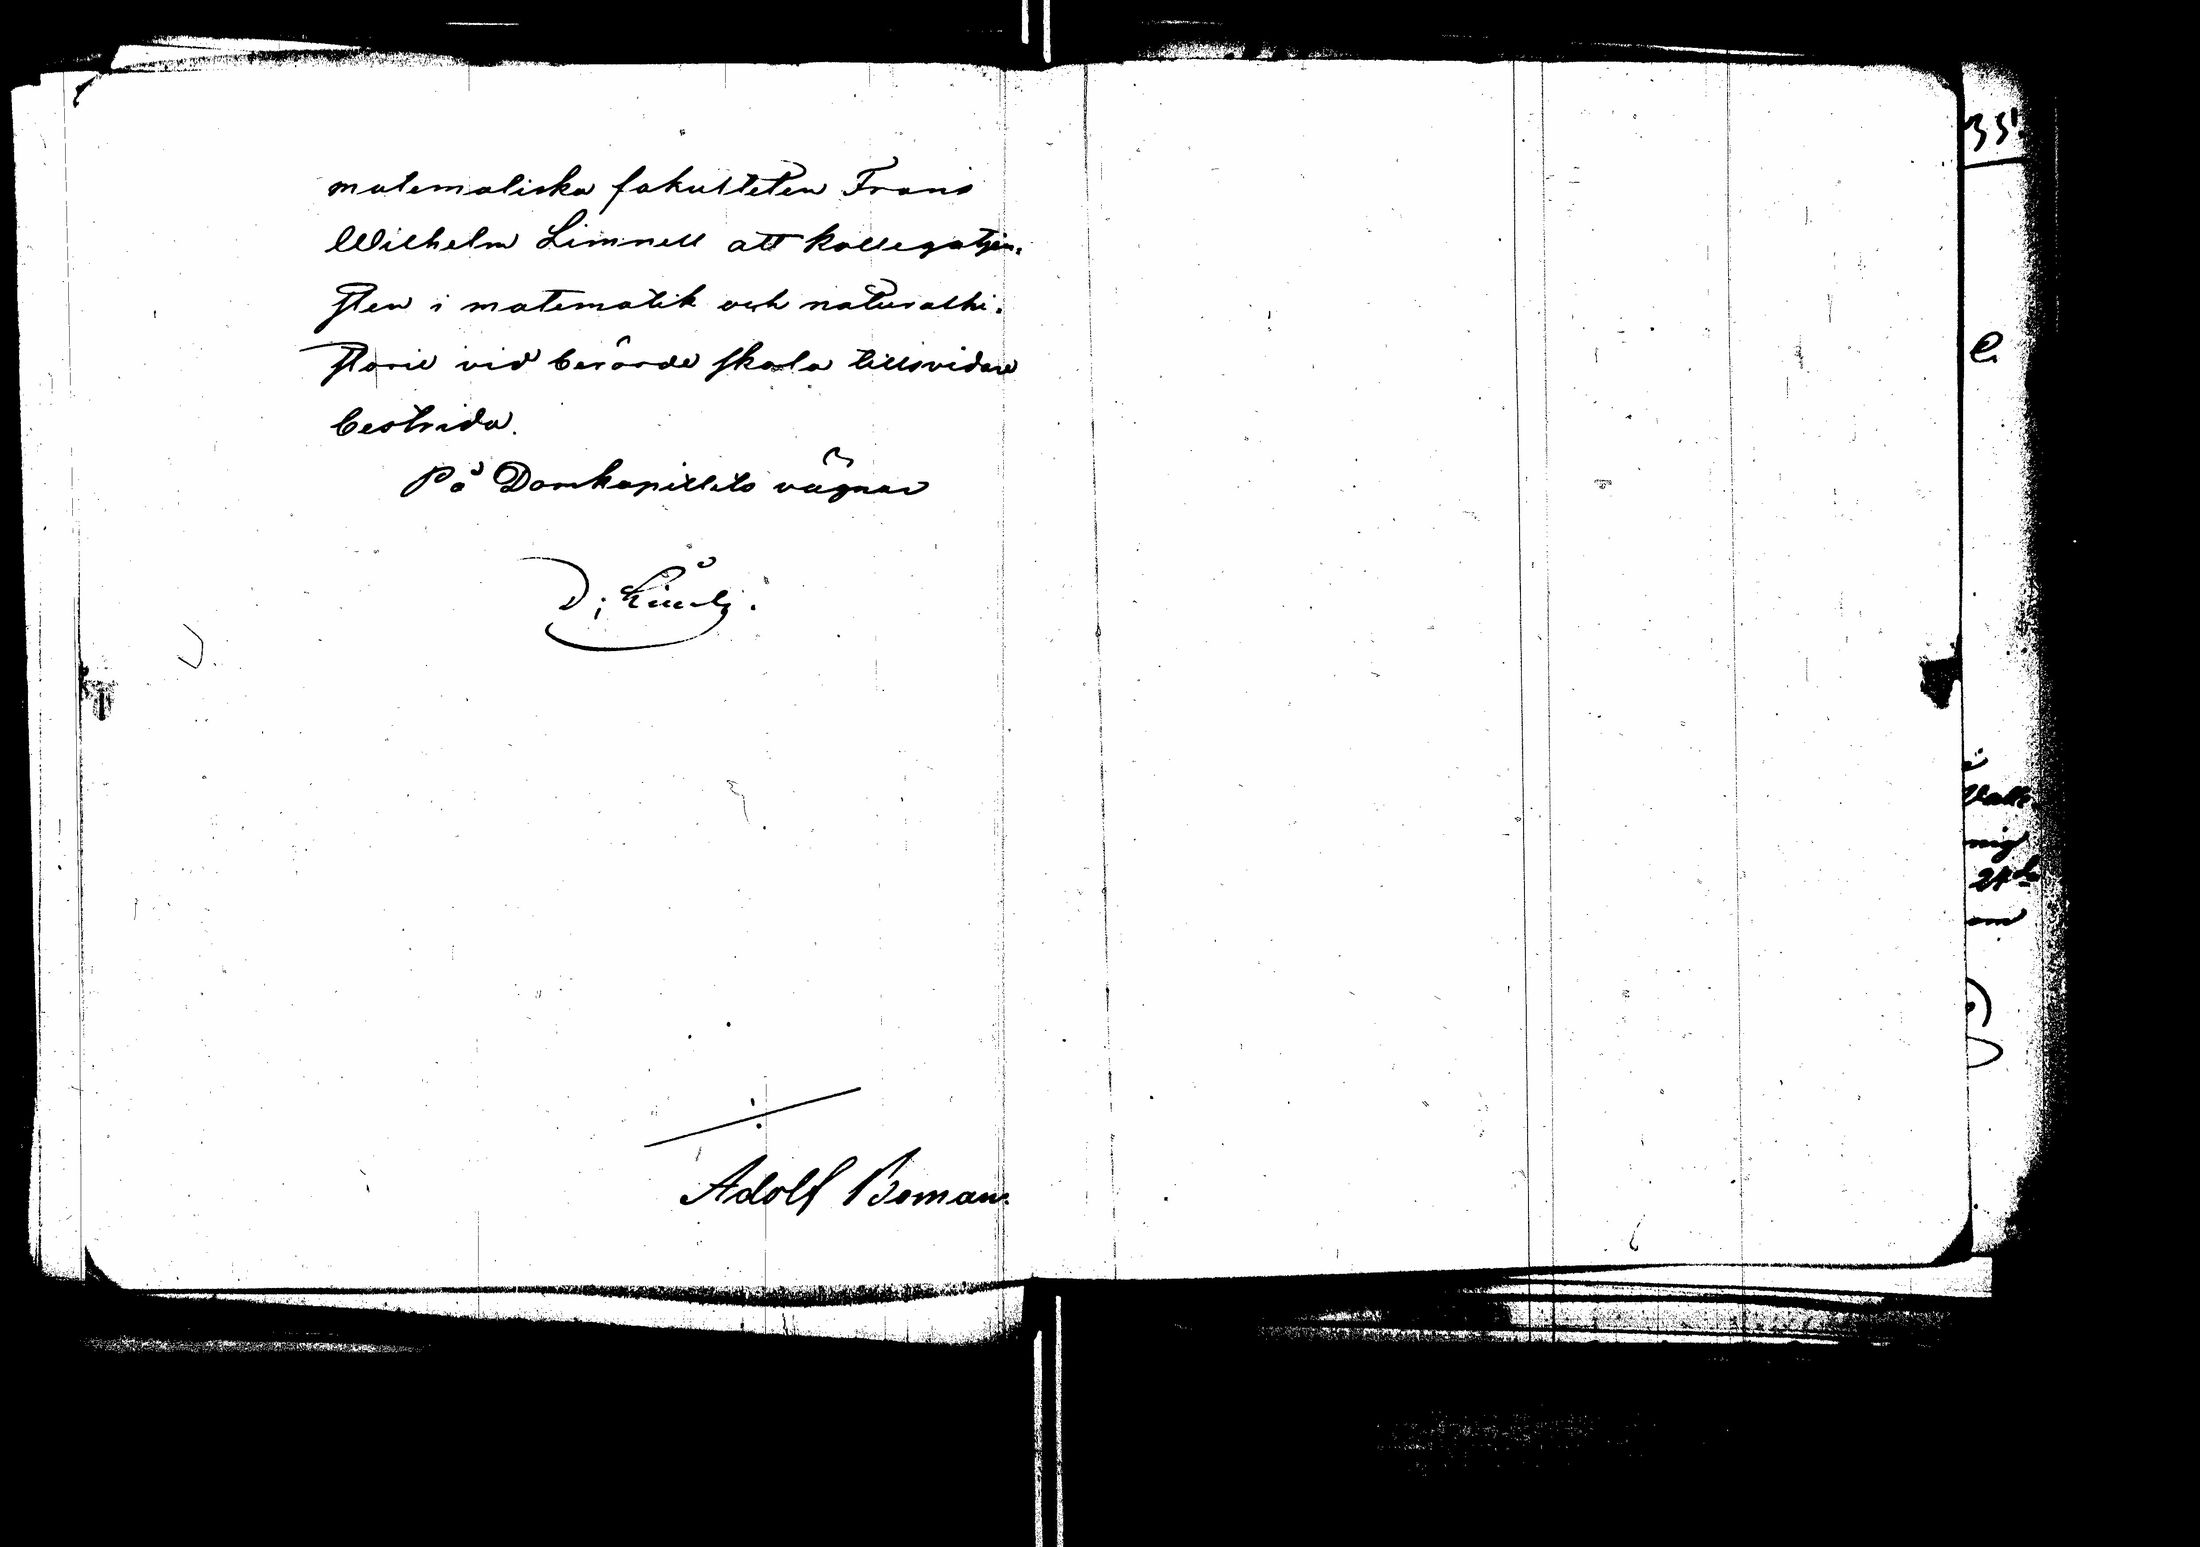 matematiska fakulteten Frans
Wilhelm Limnell att kollegatjen-
sten i matematik och naturalhi-
storie vid berörde skola tillsvidare
bestrida.
På Domkapitlets vägnar
D:
Adolf Boman.
35
e.
mig
24de
om